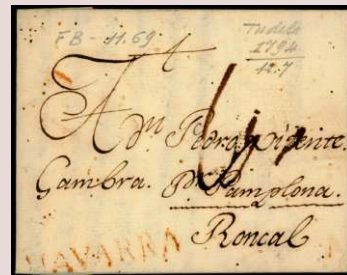 FB - 11.69
Tudela
1794
12.7
A dn Pedro Vicente
Gambra. Pr Pamplona.
Roncal
NAVARRA